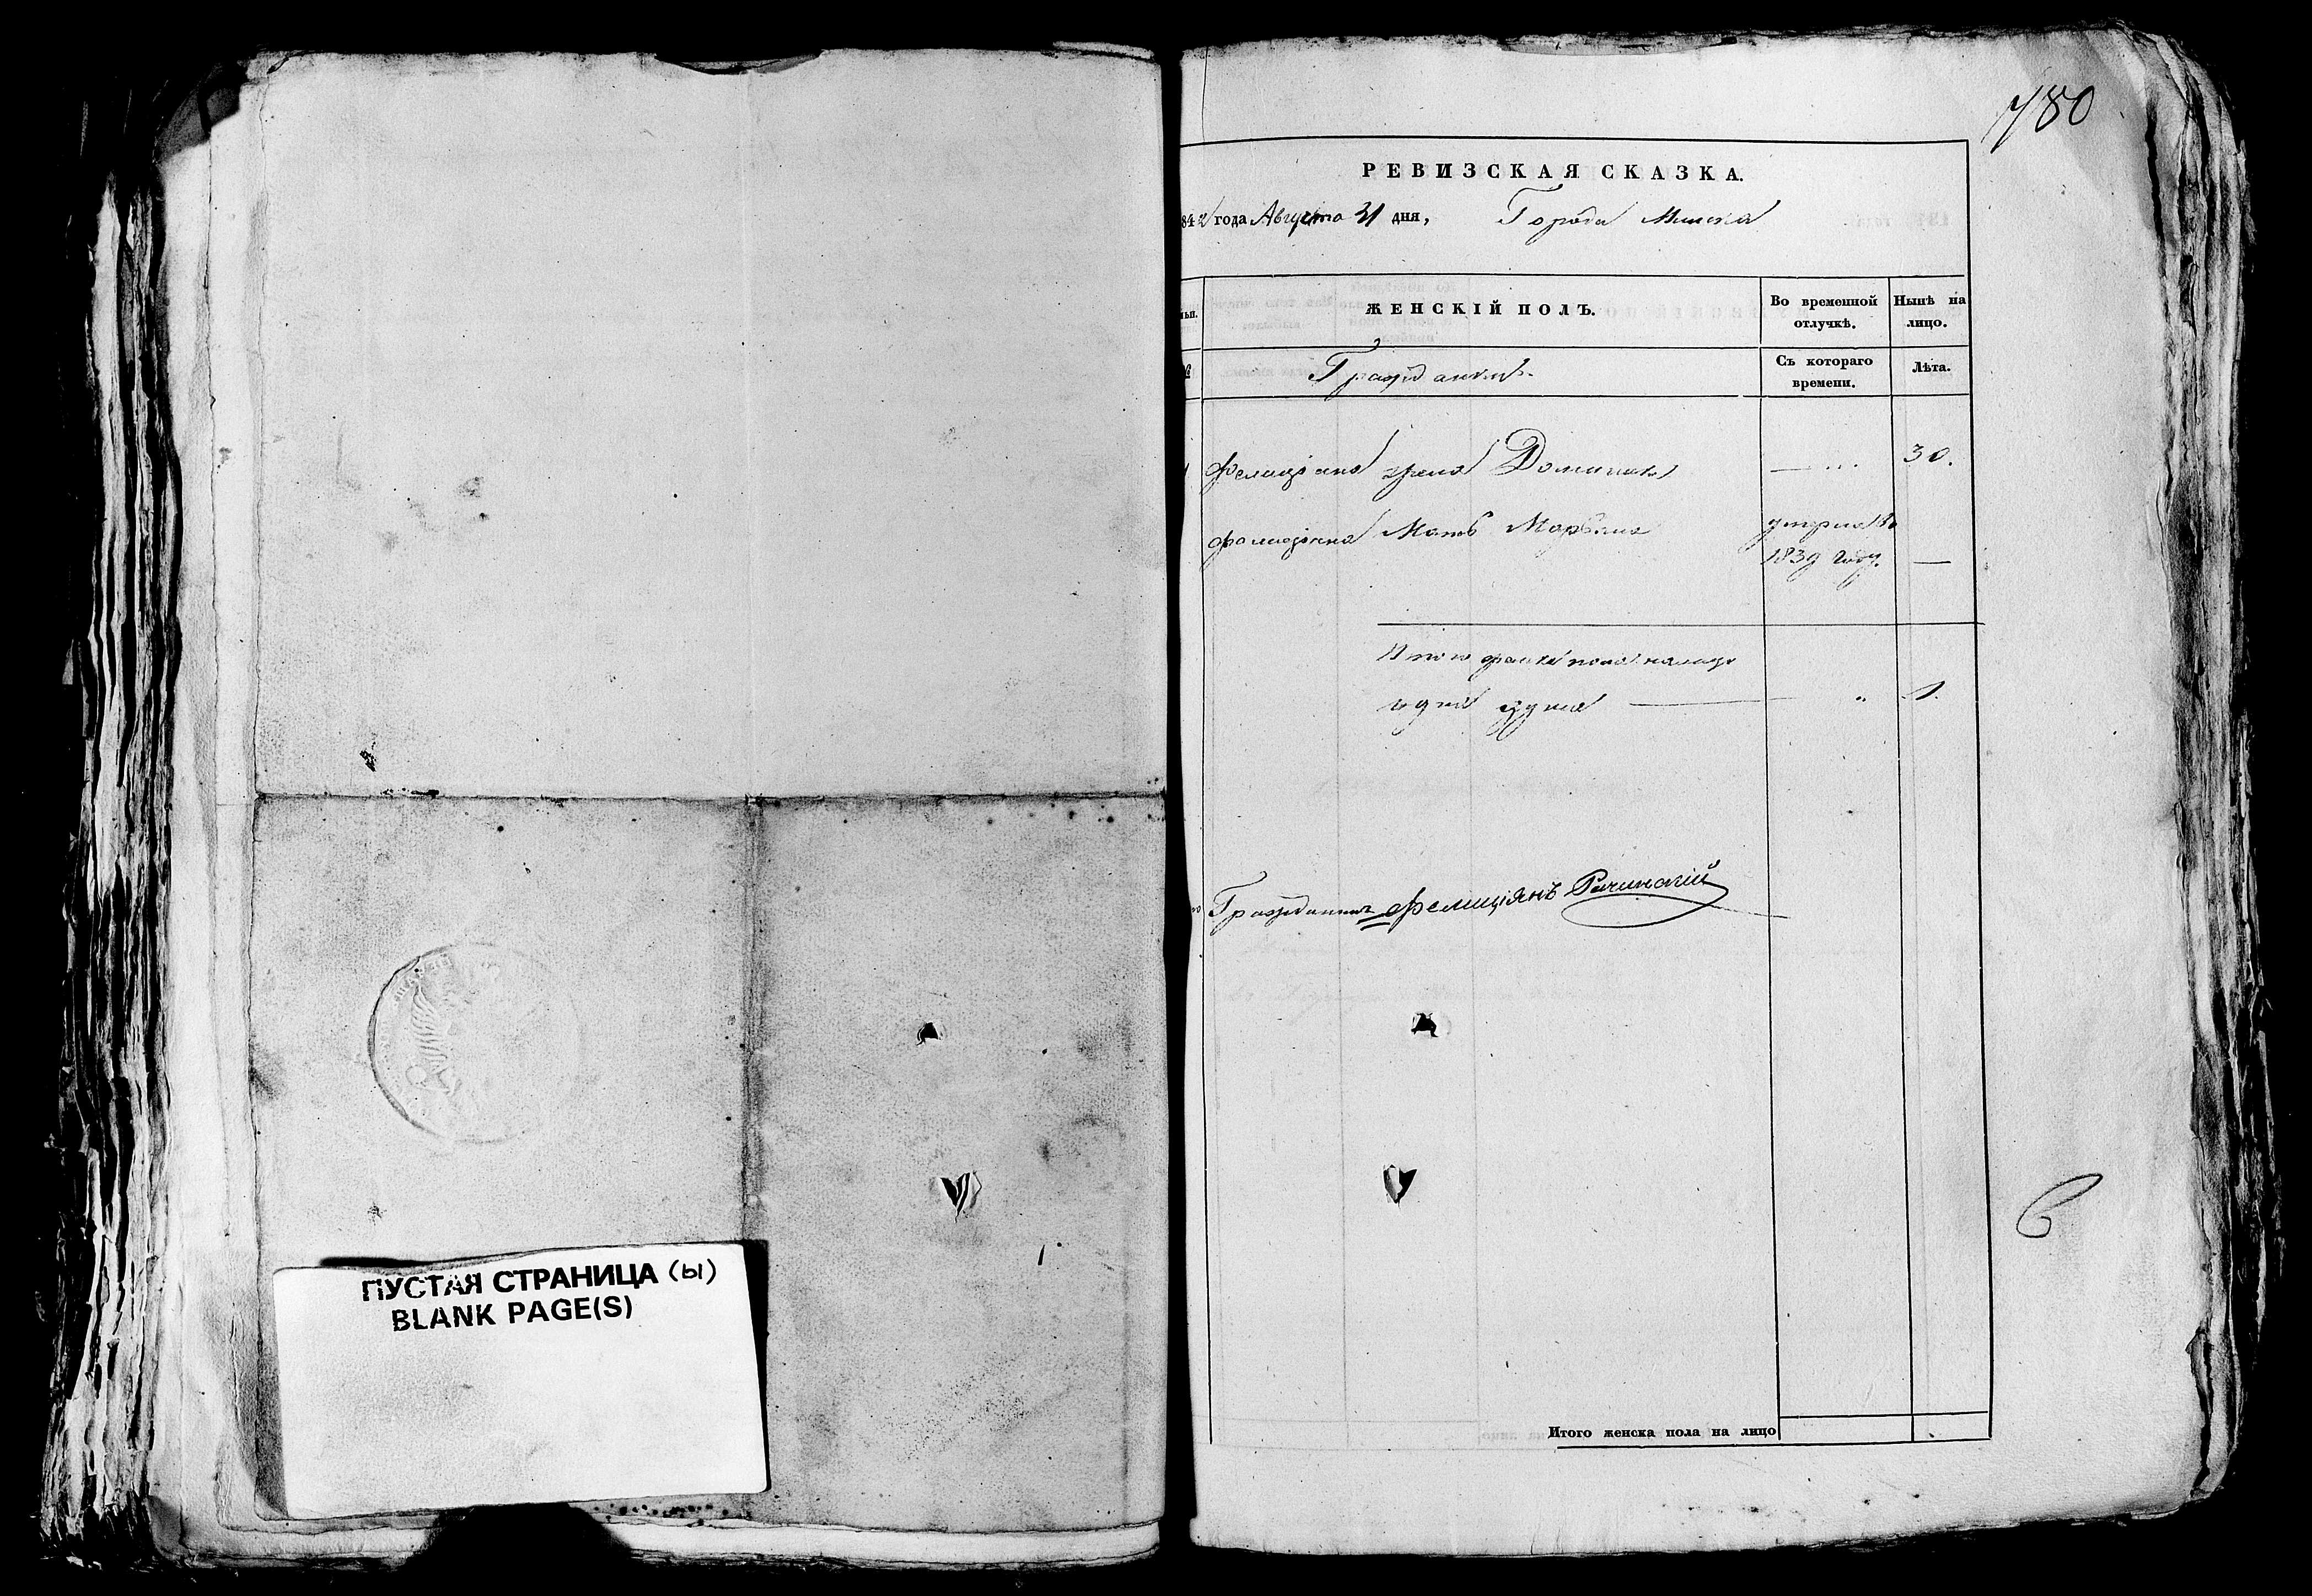 ПУСТАЯ СТРАНИЦА (ы)
BLANK PAGE(S)
780
РЕВИЗСКАЯ СКАЗКА.
842 года Августа 31 дня, Города Минска
ЖЕНСКІЙ ПОЛЪ.
Во временной отлучкѣ.
Нынѣ на лицо.
Съ котораго времени.
Лѣта.
Фелиціана жена Доминика — 30.
Фелиціана Мать Марьяна умерла въ
1839 году. —
Итого женска пола налицо
одна душа — " 1.
Гражданинъ Фелиціянъ Рачинскій
Итого женска пола на лицо